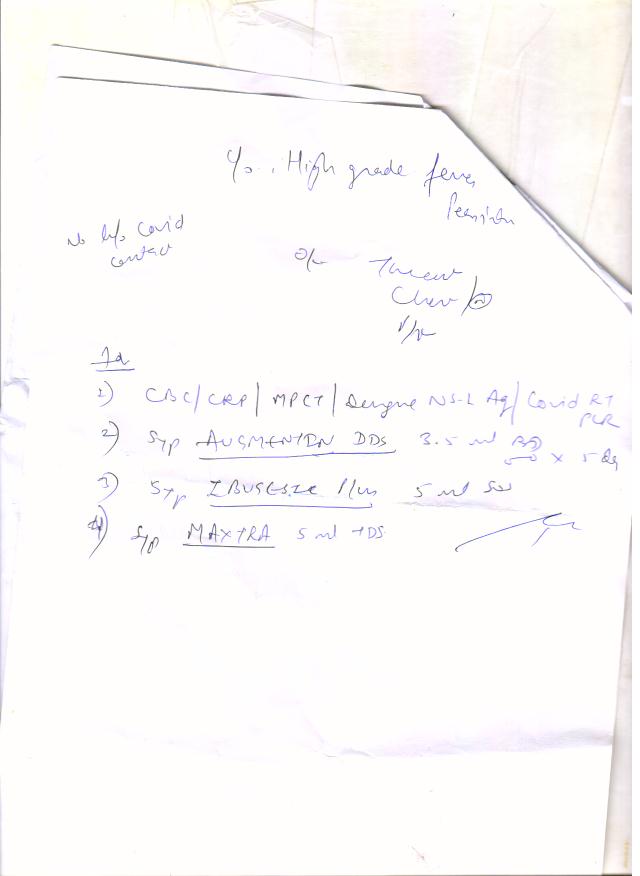 c/o High grade fever
Persistn
No h/o Covid
contact
o/e Throat
Chest
P/A
1) CBC/CRP/MPCT/Dengue NS-1 Ag/Covid RT
PCR
2) Syp AUGMENTIN DDS 3.5 ml BD
x 5 ds
3) Syp IBUGESIC Plus 5 ml SOS
4) Syp MAXTRA 5 ml TDS